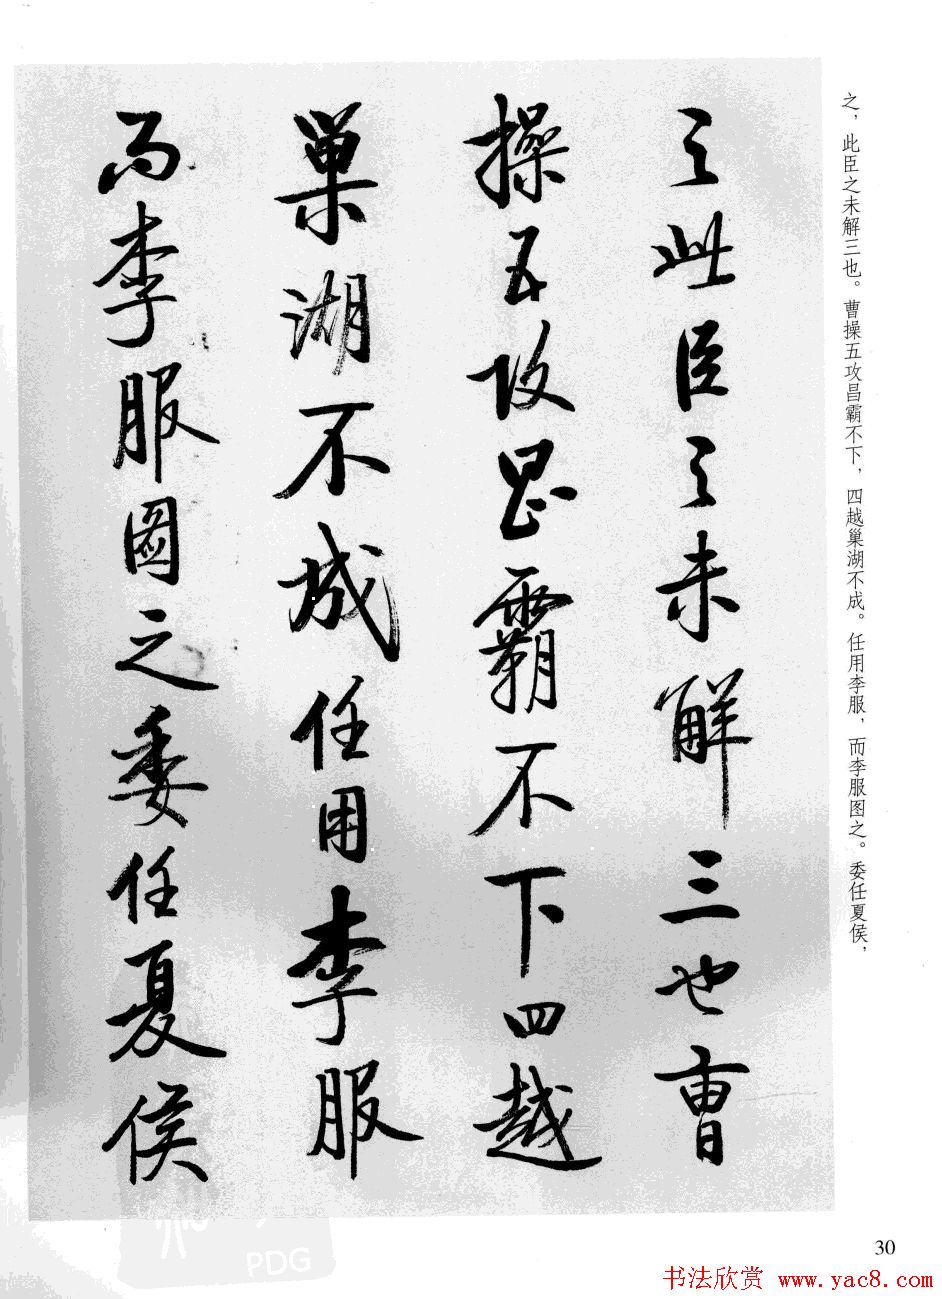 之，此臣之未解三也。曹操五攻昌霸不下，四越巢湖不成。任用李服，而李服图之。委任夏侯，
之此臣之未解三也曹
操五攻昌霸不下四越
巢湖不成任用李服
而李服圖之委任夏侯
30
PDG
书法欣赏 www.yac8.com